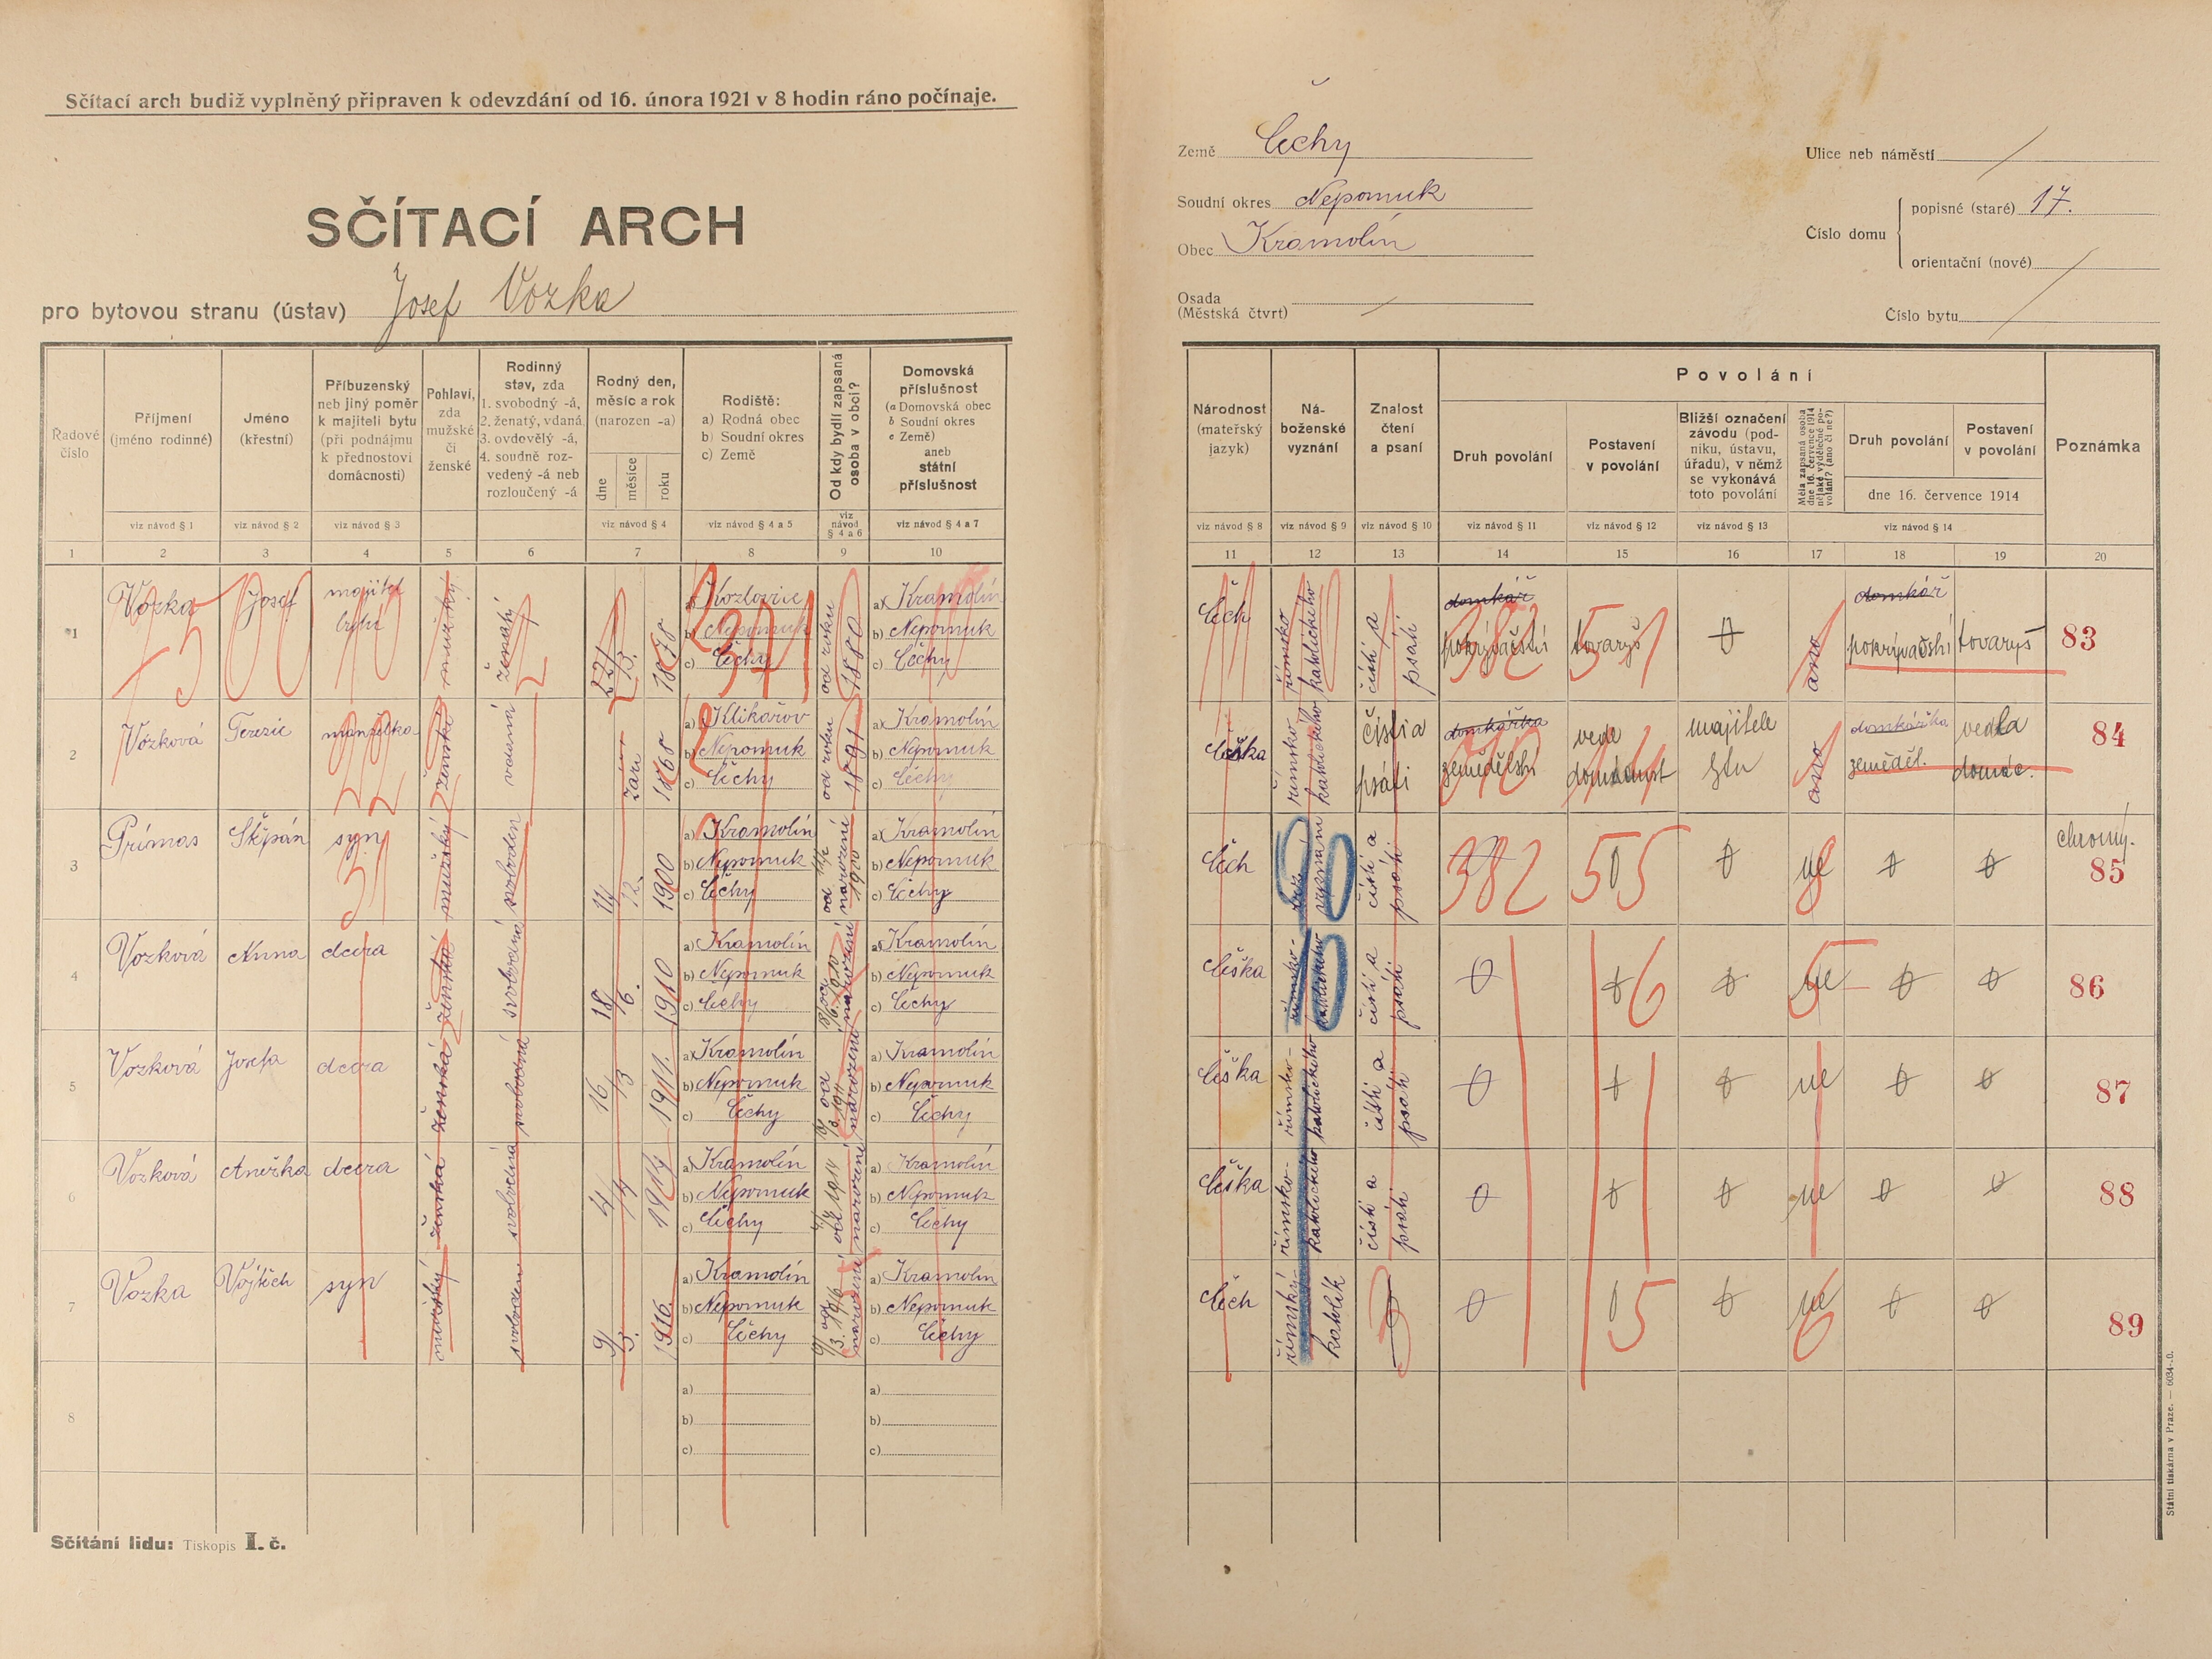 Sčítací arch budiž vyplněný připraven k odevzdání od 16. února 1921 v 8 hodin ráno počínaje.
SČÍTACÍ ARCH
pro bytovou stranu (ústav) Josef Vozka
Země Čechy
Soudní okres Nepomuk
Obec Kramolín
Osada
(Městská čtvrt)
Ulice neb náměstí
Číslo domu
popisné (staré) 17.
orientační (nové)
Číslo bytu
Řadové číslo
Příjmení (jméno rodinné)
Jméno (křestní)
Příbuzenský neb jiný poměr k majiteli bytu (při podnájmu k přednostovi domácnosti)
Pohlaví, zda mužské či ženské
Rodinný stav, zda 1. svobodný -á, 2. ženatý, vdaná, 3. ovdovělý -á, 4. soudně rozvedený -á neb rozloučený -á
Rodný den, měsíc a rok (narozen -a)
dne měsíce roku
Rodiště: a) Rodná obec b) Soudní okres c) Země
Od kdy bydlí zapsaná osoba v obci?
Domovská příslušnost (a Domovská obec b Soudní okres c Země) aneb státní příslušnost
viz návod § 1 viz návod § 2 viz návod § 3 viz návod § 4 viz návod § 4 a 5 viz návod § 4 a 6 viz návod § 4 a 7
1 2 3 4 5 6 7 8 9 10
Národnost (mateřský jazyk)
Náboženské vyznání
Znalost čtení a psaní
Povolání
Druh povolání
Postavení v povolání
Bližší označení závodu (podniku, ústavu, úřadu), v němž se vykonává toto povolání
Měla zapsaná osoba dne 16. července 1914 nějaké výdělečné povolání? (ano či ne?)
Druh povolání
Postavení v povolání
dne 16. července 1914
Poznámka
viz návod § 8 viz návod § 9 viz návod § 10 viz návod § 11 viz návod § 12 viz návod § 13 viz návod § 14
11 12 13 14 15 16 17 18 19 20
1 Vozka Josef majitel bytu mužský ženatý 22/3. 1878
a) Kozlovice
b) Nepomuk
c) Čechy
od roku 1880
a) Kramolín
b) Nepomuk
c) Čechy
Čech římsko katolického čísti a psáti domkář pokrývačství tovaryš ano domkář pokrývačství tovaryš 83
2 Vozková Terezie manželka ženská vdaná září 1868
a) Klikařov
b) Nepomuk
c) Čechy
od roku 1891
a) Kramolín
b) Nepomuk
c) Čechy
Češka římsko katolického čísti a psáti domkářka zemědělství vede domácnost majitele ano domkářka zeměděl. vedla domác. 84
3 Prímas Štěpán syn mužský svoboden 14/12. 1900
a) Kramolín
b) Nepomuk
c) Čechy
od narození 1900
a) Kramolín
b) Nepomuk
c) Čechy
Čech bez vyznání čísti a psáti ne chromý. 85
4 Vozková Anna dcera ženská svobodná 18/6. 1910
a) Kramolín
b) Nepomuk
c) Čechy
18/6. 1910 od narození
a) Kramolín
b) Nepomuk
c) Čechy
Češka římsko-katolického čísti a psáti ne 86
5 Vozková Josefa dcera ženská svobodná 16/3 1911.
a) Kramolín
b) Nepomuk
c) Čechy
od narození
a) Kramolín
b) Nepomuk
c) Čechy
Češka římsko-katolického čísti a psáti ne 87
6 Vozková Anežka dcera ženská svobodná 4/4 1914
a) Kramolín
b) Nepomuk
c) Čechy
4/4 1914 od narození
a) Kramolín
b) Nepomuk
c) Čechy
Češka římsko-katolického čísti a psáti ne 88
7 Vozka Vojtěch syn mužský svoboden 9/3. 1916.
a) Kramolín
b) Nepomuk
c) Čechy
9/3. 1916 od narození
a) Kramolín
b) Nepomuk
c) Čechy
Čech římský-katolík ne 89
8
a)
b)
c)
a)
b)
c)
Sčítání lidu: Tiskopis I. č.
Státní tiskárna v Praze. — 6034-.0.